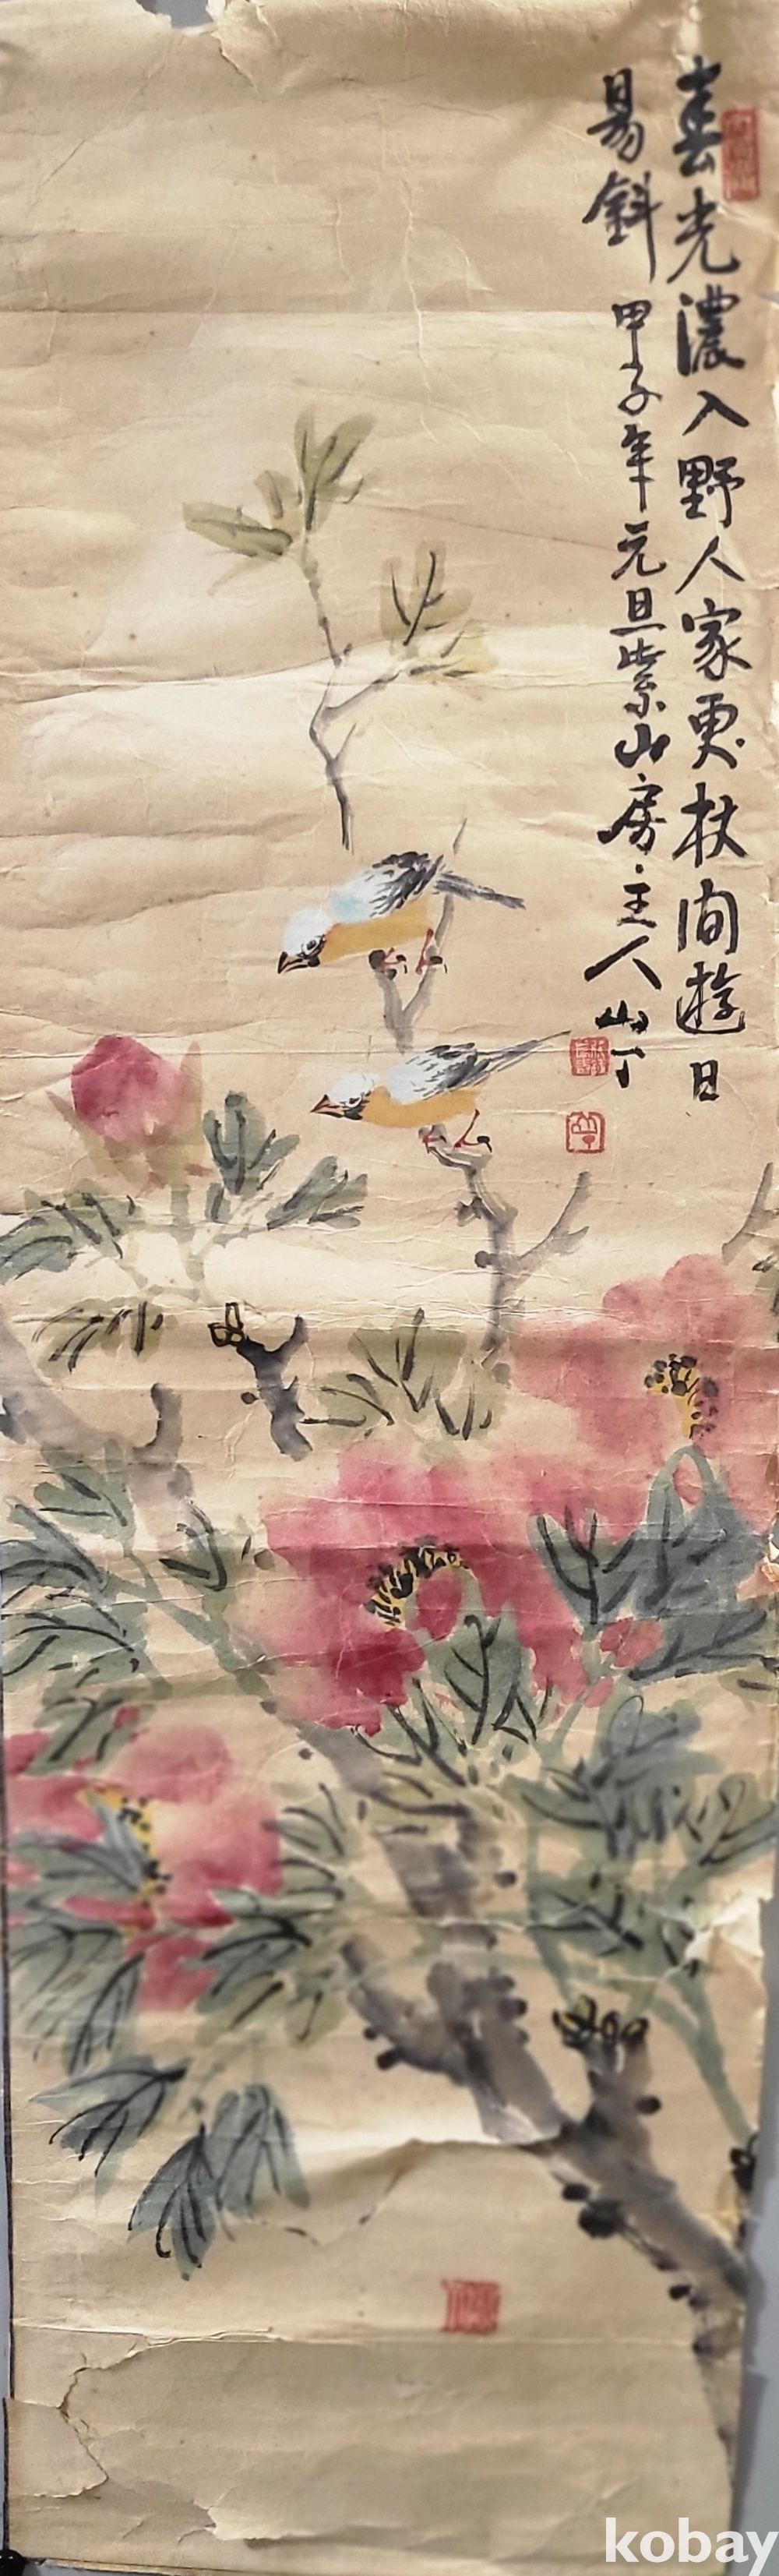 春光濃入野人家更杖閒遊日
易斜 甲子年元旦紫山房主人山丁
kobay